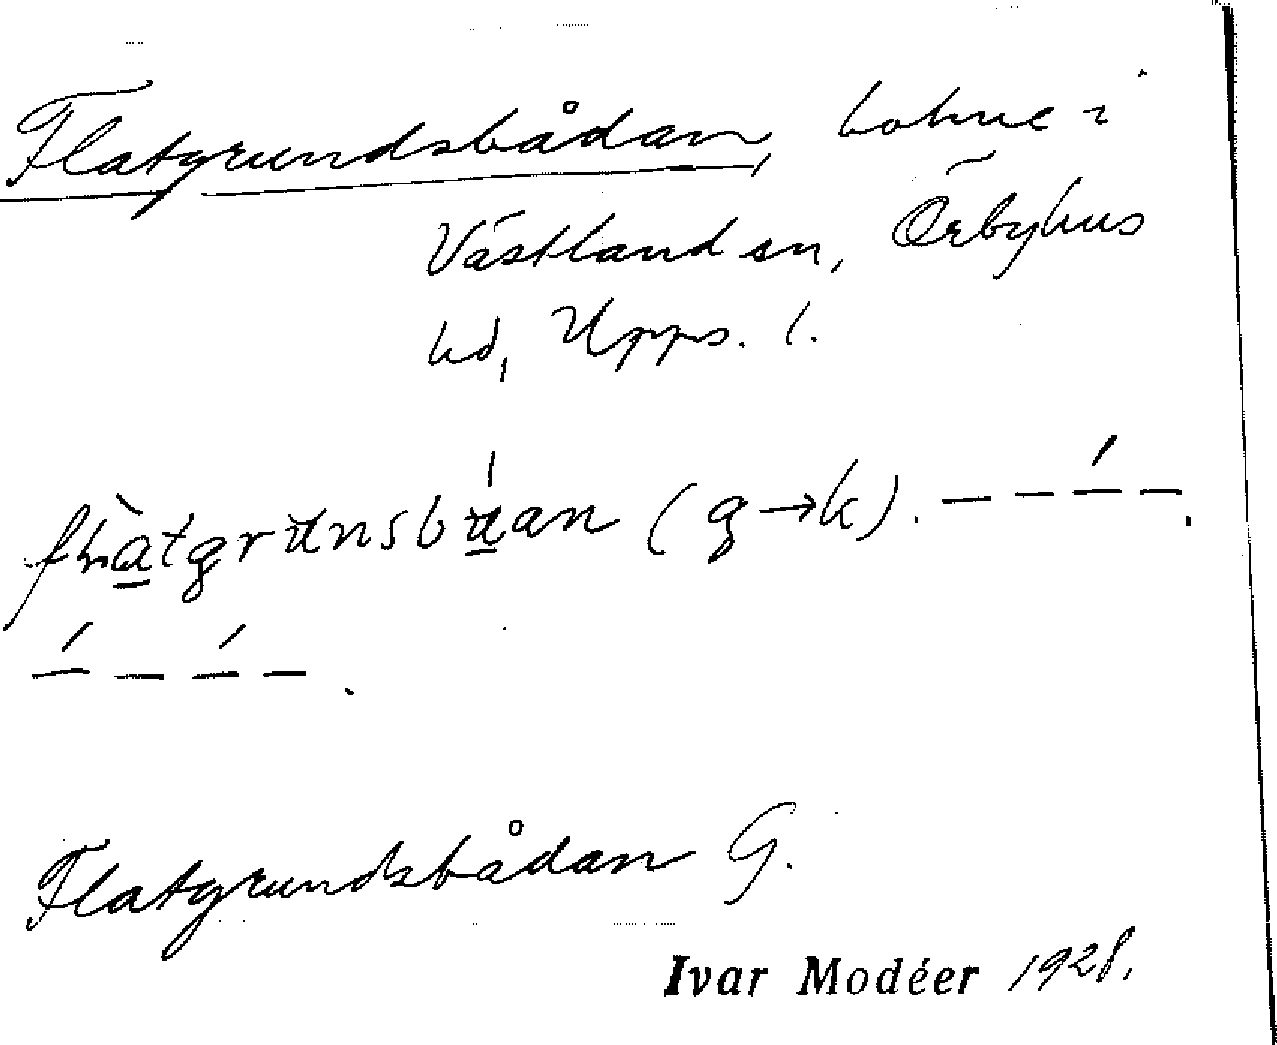 Flatgrundsbådan, holme i
Västland sn, Örbyhus
hd, Upps. l.
(g→k). — — —́ —.
—́ — —́ — .
Flatgrundsbådan G.
Ivar Modéer 1928.